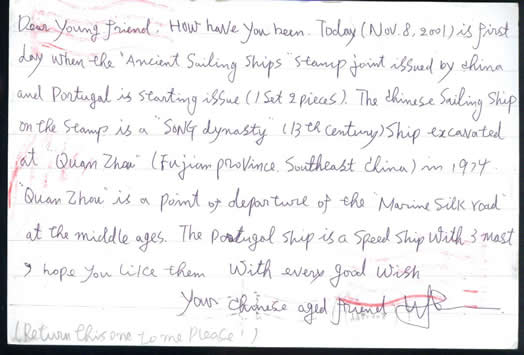 Dear Young friend. How have you been. Today (Nov. 8, 2001) is first
day when the "Ancient Sailing Ships" stamp joint issued by China
and Portugal is starting issue (1 Set 2 pieces). The Chinese Sailing Ship
on the stamp is a "SONG dynasty" (13th century) ship excavated
at "Quan Zhou" (Fujian province. Southeast China) in 1974.
"Quan Zhou" is a point of departure of the "Marine Silk road"
at the middle ages. The Portugal ship is a speed ship with 3 mast
I hope you like them With every good wish
Your Chinese aged friend
(Return this one to me please!)